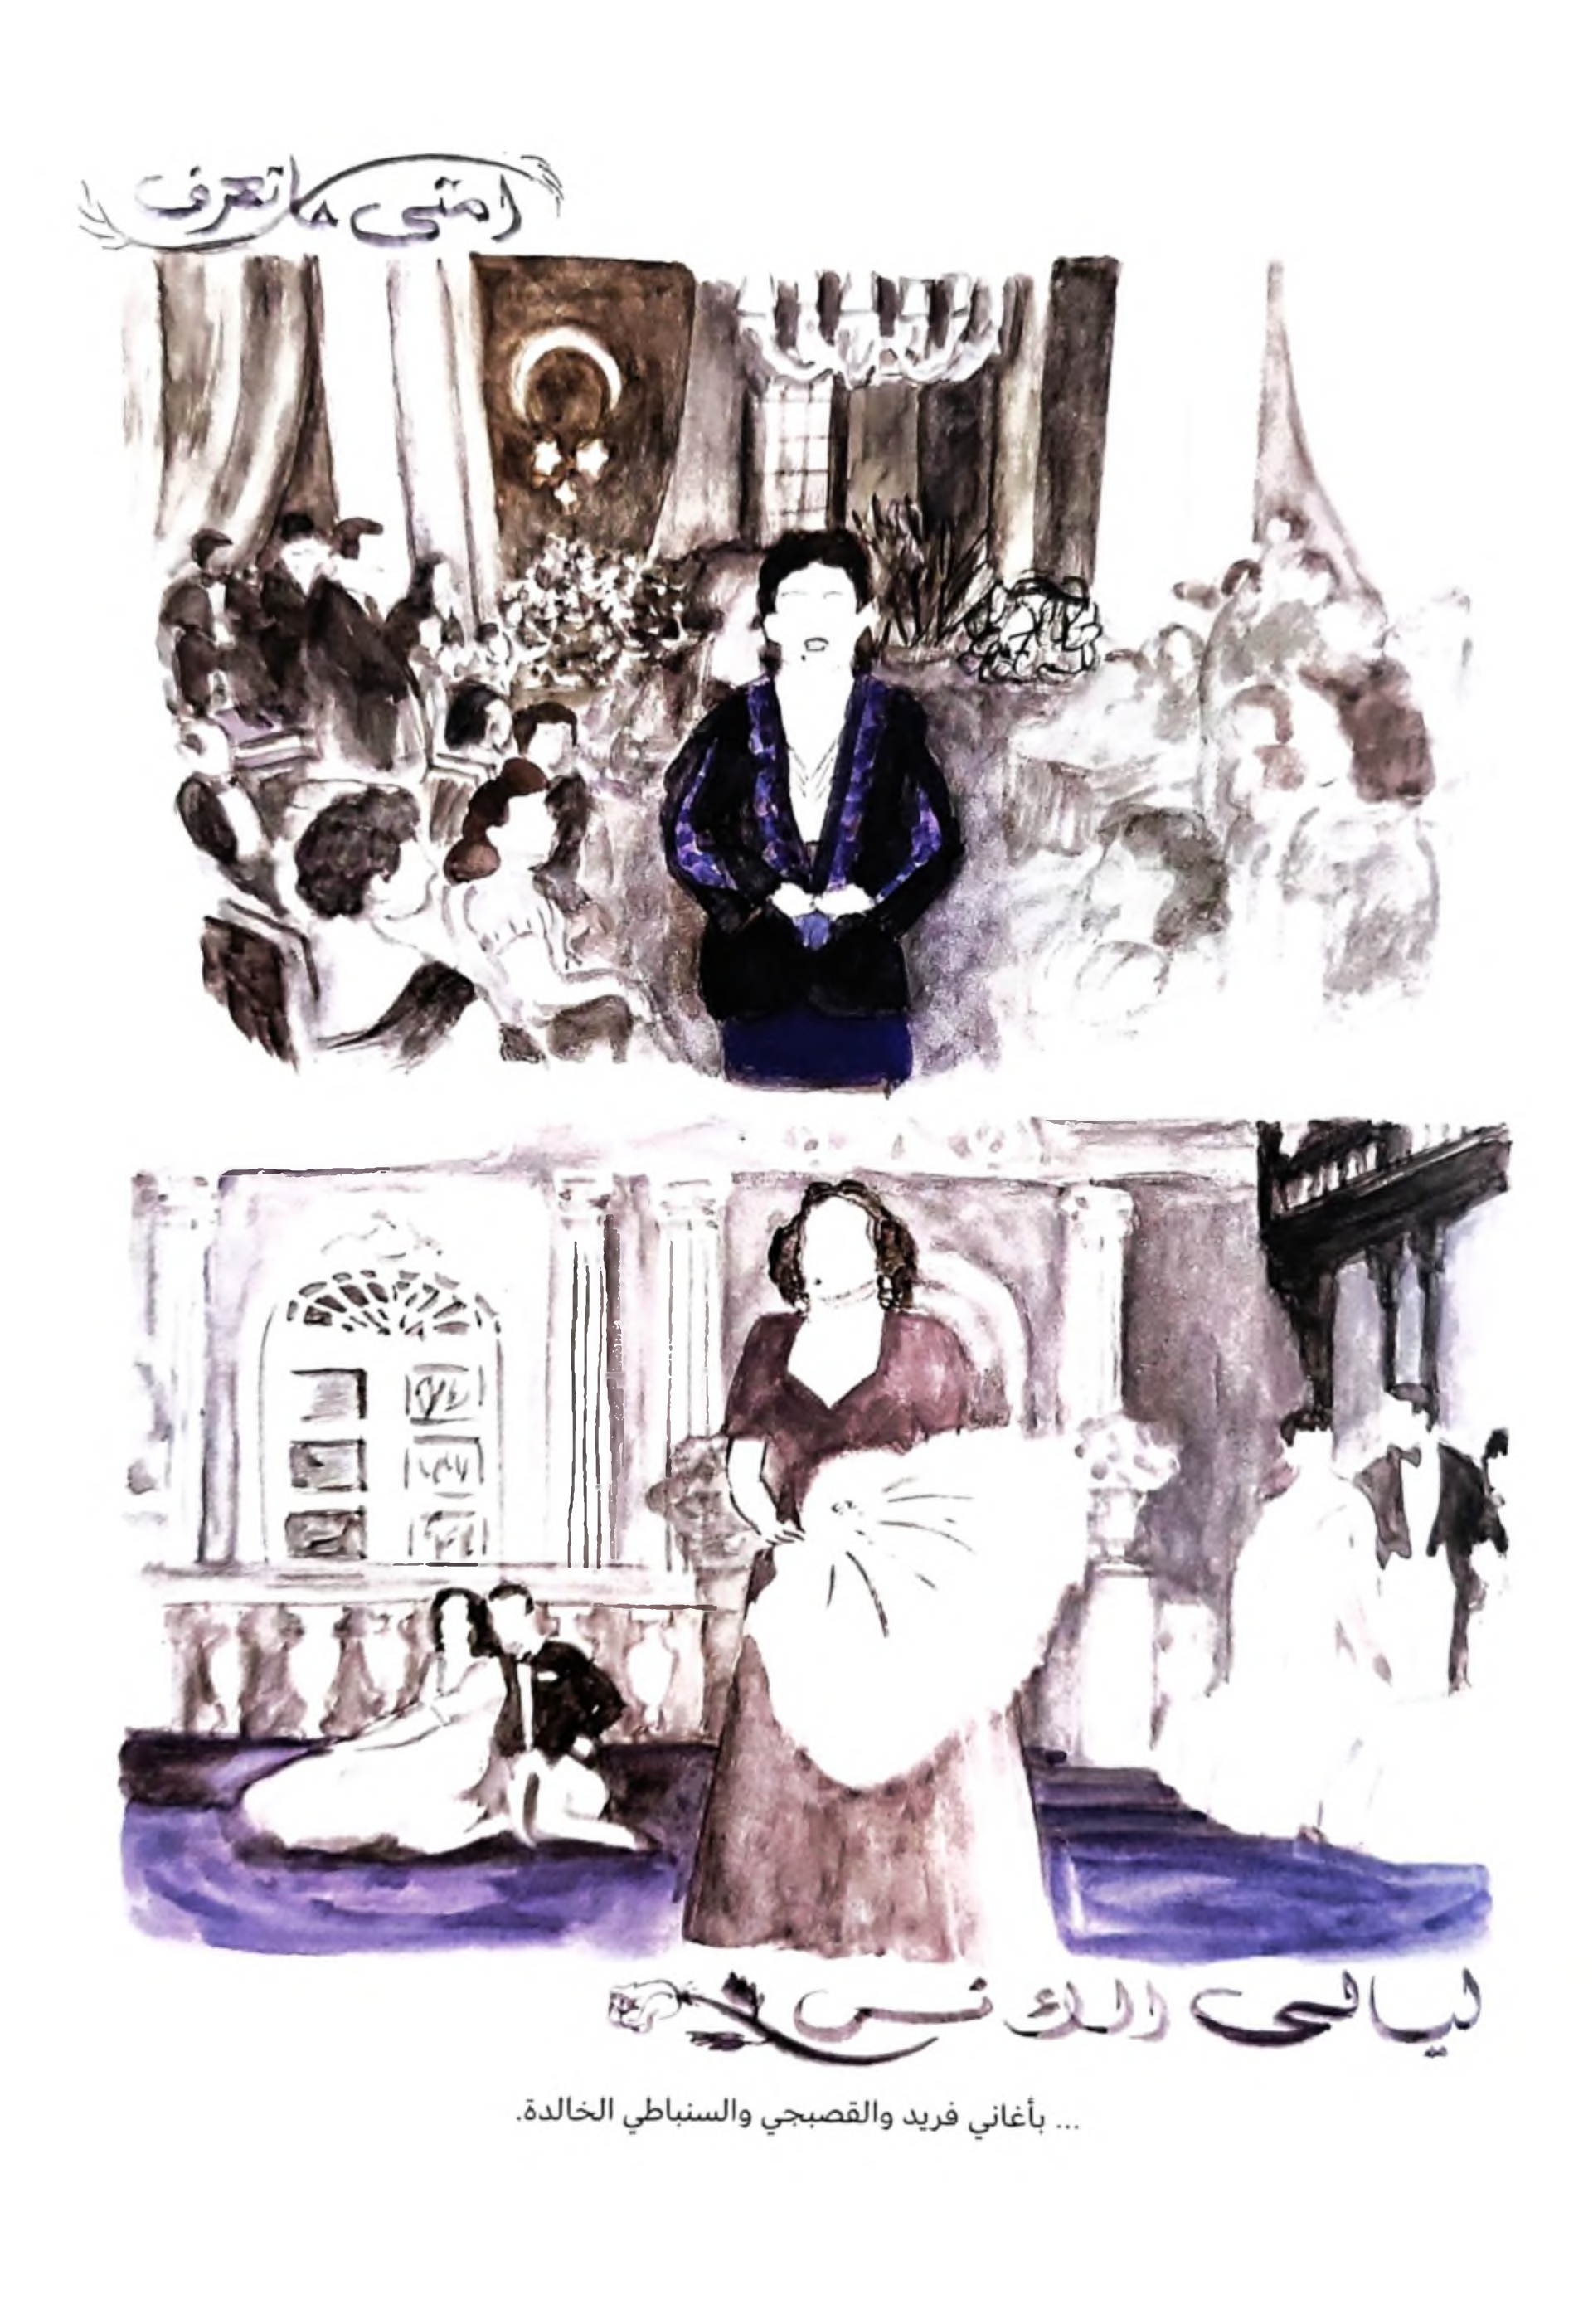 امتى ٨ تعرف
ليالي الأنس
... بأغاني فريد والقصبجي والسنباطي الخالدة.